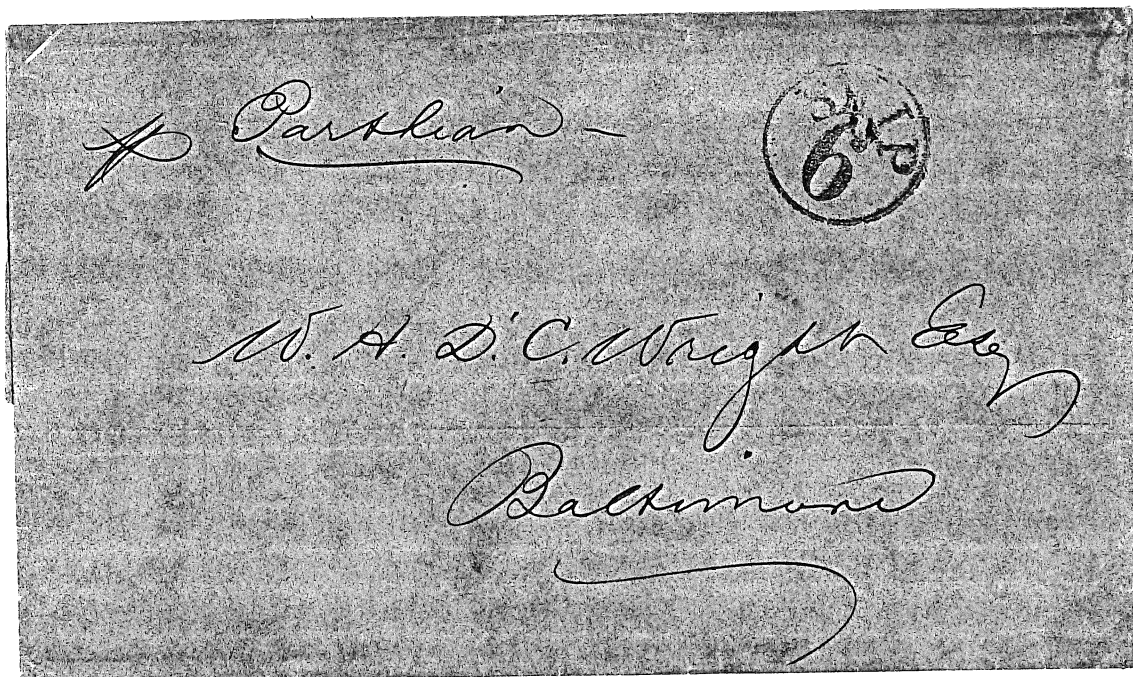 p Parthian –
SHIP
6
W. H. D. C. Wright Esq
Baltimore